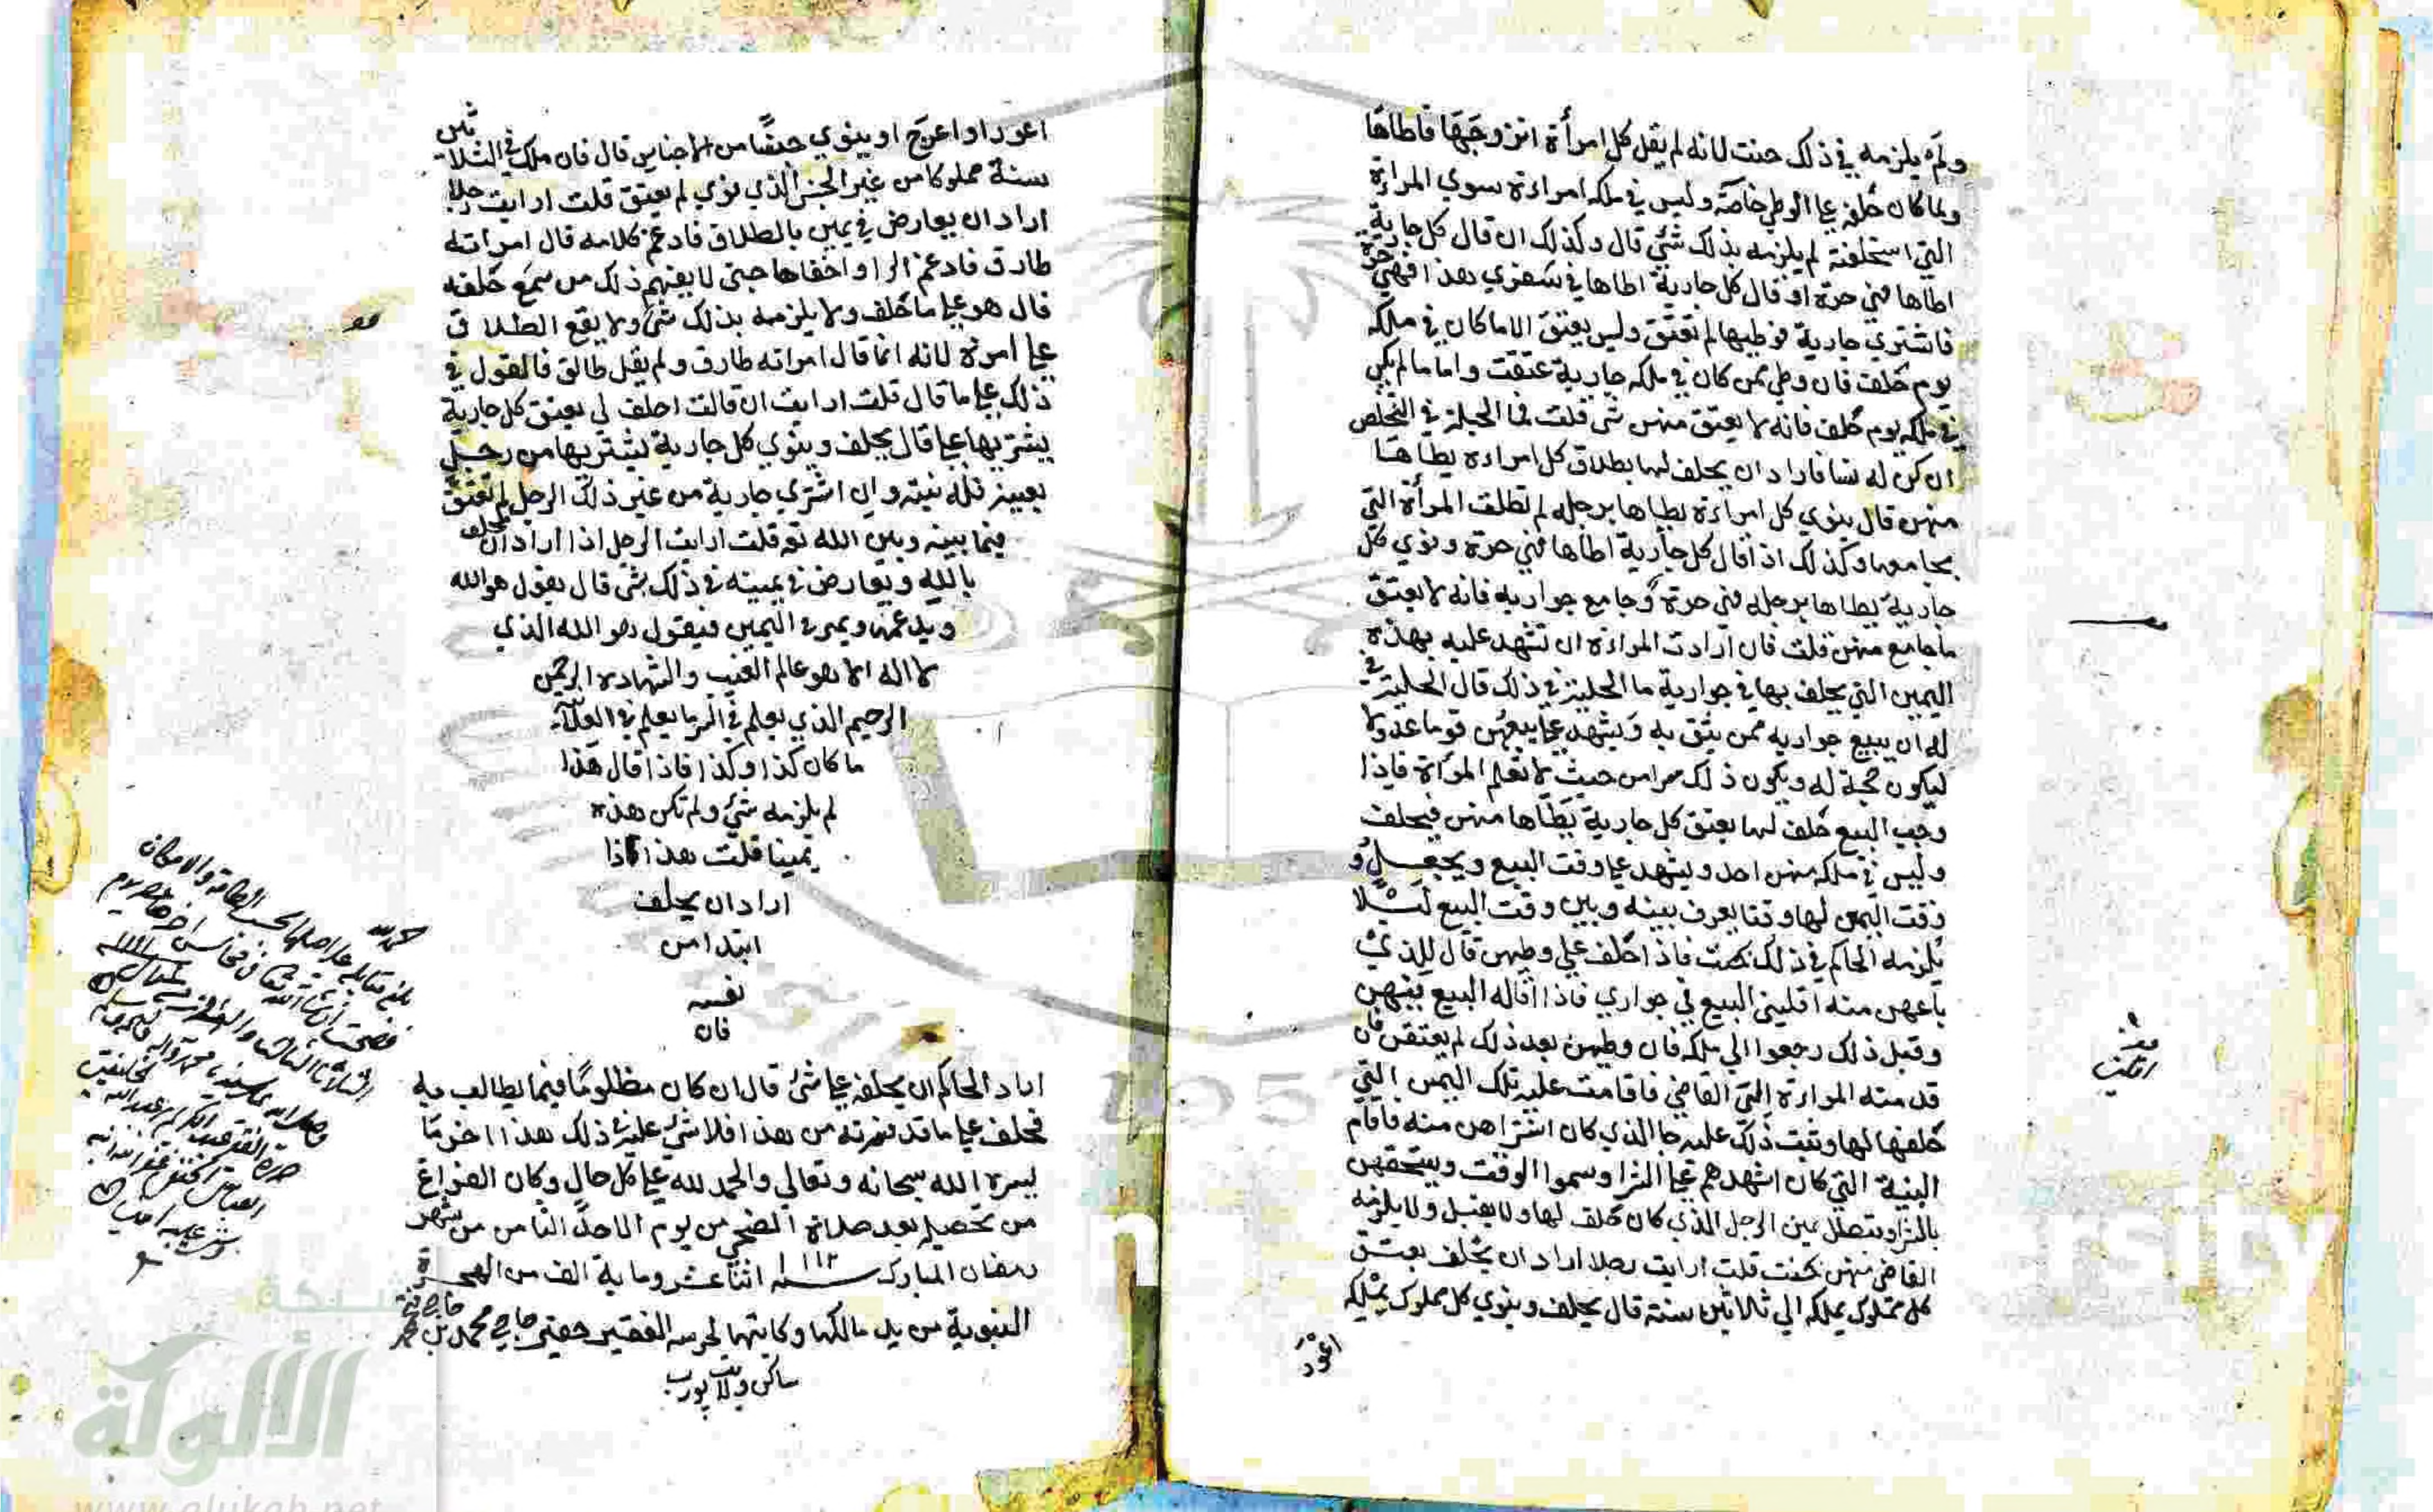 ولم يلزمه في ذلك حنث لانه لم يقل كل امرأة اتزوجها فاطاها
وبما كان حلفه علي الوطي خاصة وليس في ملكه امراءة سوي المراءة
التي استحلفته لم يلزمه بذلك شئ قال وكذلك ان قال كل جارية
اطاها فهي حرة او قال كل جارية اطاها في سفري هذا فهي حرة
فاشتري جارية فوطيها لم تعتق وليس يعتق الا ما كان في ملكه
يوم حلف فان وطي ممن كان في ملكه جارية عتقت واما ما لم يكن
في ملكه يوم حلف فانه لا يعتق منهن شي قلت فما الحيلة في التخلص
ان كن له نسا فاراد ان يحلف لها بطلاق كل امراءة يطاها
منهن قال ينوي كل امراءة يطاها برجله لم تطلق المرأة التي
يجامعها وكذلك اذا قال كل جارية اطاها فهي حرة ونوي كل
جارية يطاها برجله فهي حرة وجامع جواريه فانه لا يعتق
ما جامع منهن قلت فان ارادت المراءة ان تشهد عليه بهذه
اليمين التي يحلف بها في جواريه ما الحيلة في ذلك قال الحيلة في
له ان يبيع جواريه ممن يثق به ويشهد علي بيعهن قوما عدولا
ليكون حجة له ويكون ذلك سرا من حيث لا تعلم المرأة فاذا
وجب البيع حلف لها بعتق كل جارية يطاها منهن فيحلف
وليس في ملكه منهن احد ويشهد علي وقت البيع ويجعل و
وقت اليمين لها وقتا يعرف بينه وبين وقت البيع لئلا
يلزمه الحاكم في ذلك بحنث فاذا حلف علي وطيهن قال للذي
باعهن منه اقلني البيع في جواري فاذا اقاله البيع فيهن
وقبل ذلك رجعوا الي ملكه فان وطيهن بعد ذلك لم يعتقن فان
قدمته المراءة الي القاضي فاقامت عليه تلك اليمين التي
حلفها لها وثبت ذلك عليه جا الذي كان اشتراهن منه فاقام
البينة التي كان اشهدهم علي الشرا وسموا الوقت ويستحقهن
بالشرا وتبطل يمين الرجل الذي كان حلف لها ولا يقبل ولا يلزمه
القاضي منهن بحنث قلت ارايت رجلا اراد ان يحلف بعتق
كل مملوك يملكه الي ثلاثين سنة قال يحلف وينوي كل مملوك يملكه
اعور
اعور او اعرج او ينوي جنسا من الاجناس قال فان ملك في الثلاثين
سنة مملوكا من غير الجنس الذي نوي لم يعتق قلت ارايت رجلا
اراد ان يعارض في يمين بالطلاق فادغم كلامه قال امراته
طارق فادغم الرا واخفاها حتي لا يفهم ذلك من سمع حلفه
قال هو علي ما حلف ولا يلزمه بذلك شئ ولا يقع الطلاق
علي امرته لانه انما قال امراته طارق ولم يقل طالق فالقول في
ذلك علي ما قال قلت ارايت ان قالت احلف لي بعتق كل جارية
يشتريها علي قال يحلف وينوي كل جارية يشتريها من رجل
بعينه فله نيته وان اشتري جارية من غير ذلك الرجل لم تعتق
فيما بينه وبين الله تع قلت ارايت الرجل اذا اراد ان يحلف
بالله ويعارض في يمينه في ذلك بشئ قال يقول هو الله
ويدغمها ويمر في اليمين فيقول هو الله الذي
لا اله الا هو عالم الغيب والشهادة الرحمن
الرحيم الذي يعلم في السر ما يعلم في العلانية
ما كان كذا وكذا فاذا قال هذا
لم يلزمه شئ ولم تكن هذه
يمينا قلت هذا اذا
اراد ان يحلف
ابتدا من
نفسه
فان
اراد الحاكم ان يحلفه علي شئ قال ان كان مظلوما فيما يطالب به
فحلف علي ما قد فسرته من هذا فلا شئ عليه في ذلك هذا اخر ما
يسره الله سبحانه وتعالي والحمد لله علي كل حال وكان الفراغ
من تحصيله بعد صلاة الضحي من يوم الاحد الثامن من شهر
رمضان المبارك سنة ١١١٢ اثنا عشر وماية الف من الهجرة
النبوية من يد مالكها وكاتبها لحرسه الفقير حقير حاجي محمد بن
بلغ مقابلة علي اصلها بحسب الطاقة والامكان
شبكة
الألوكة
www.alukah.net
1957